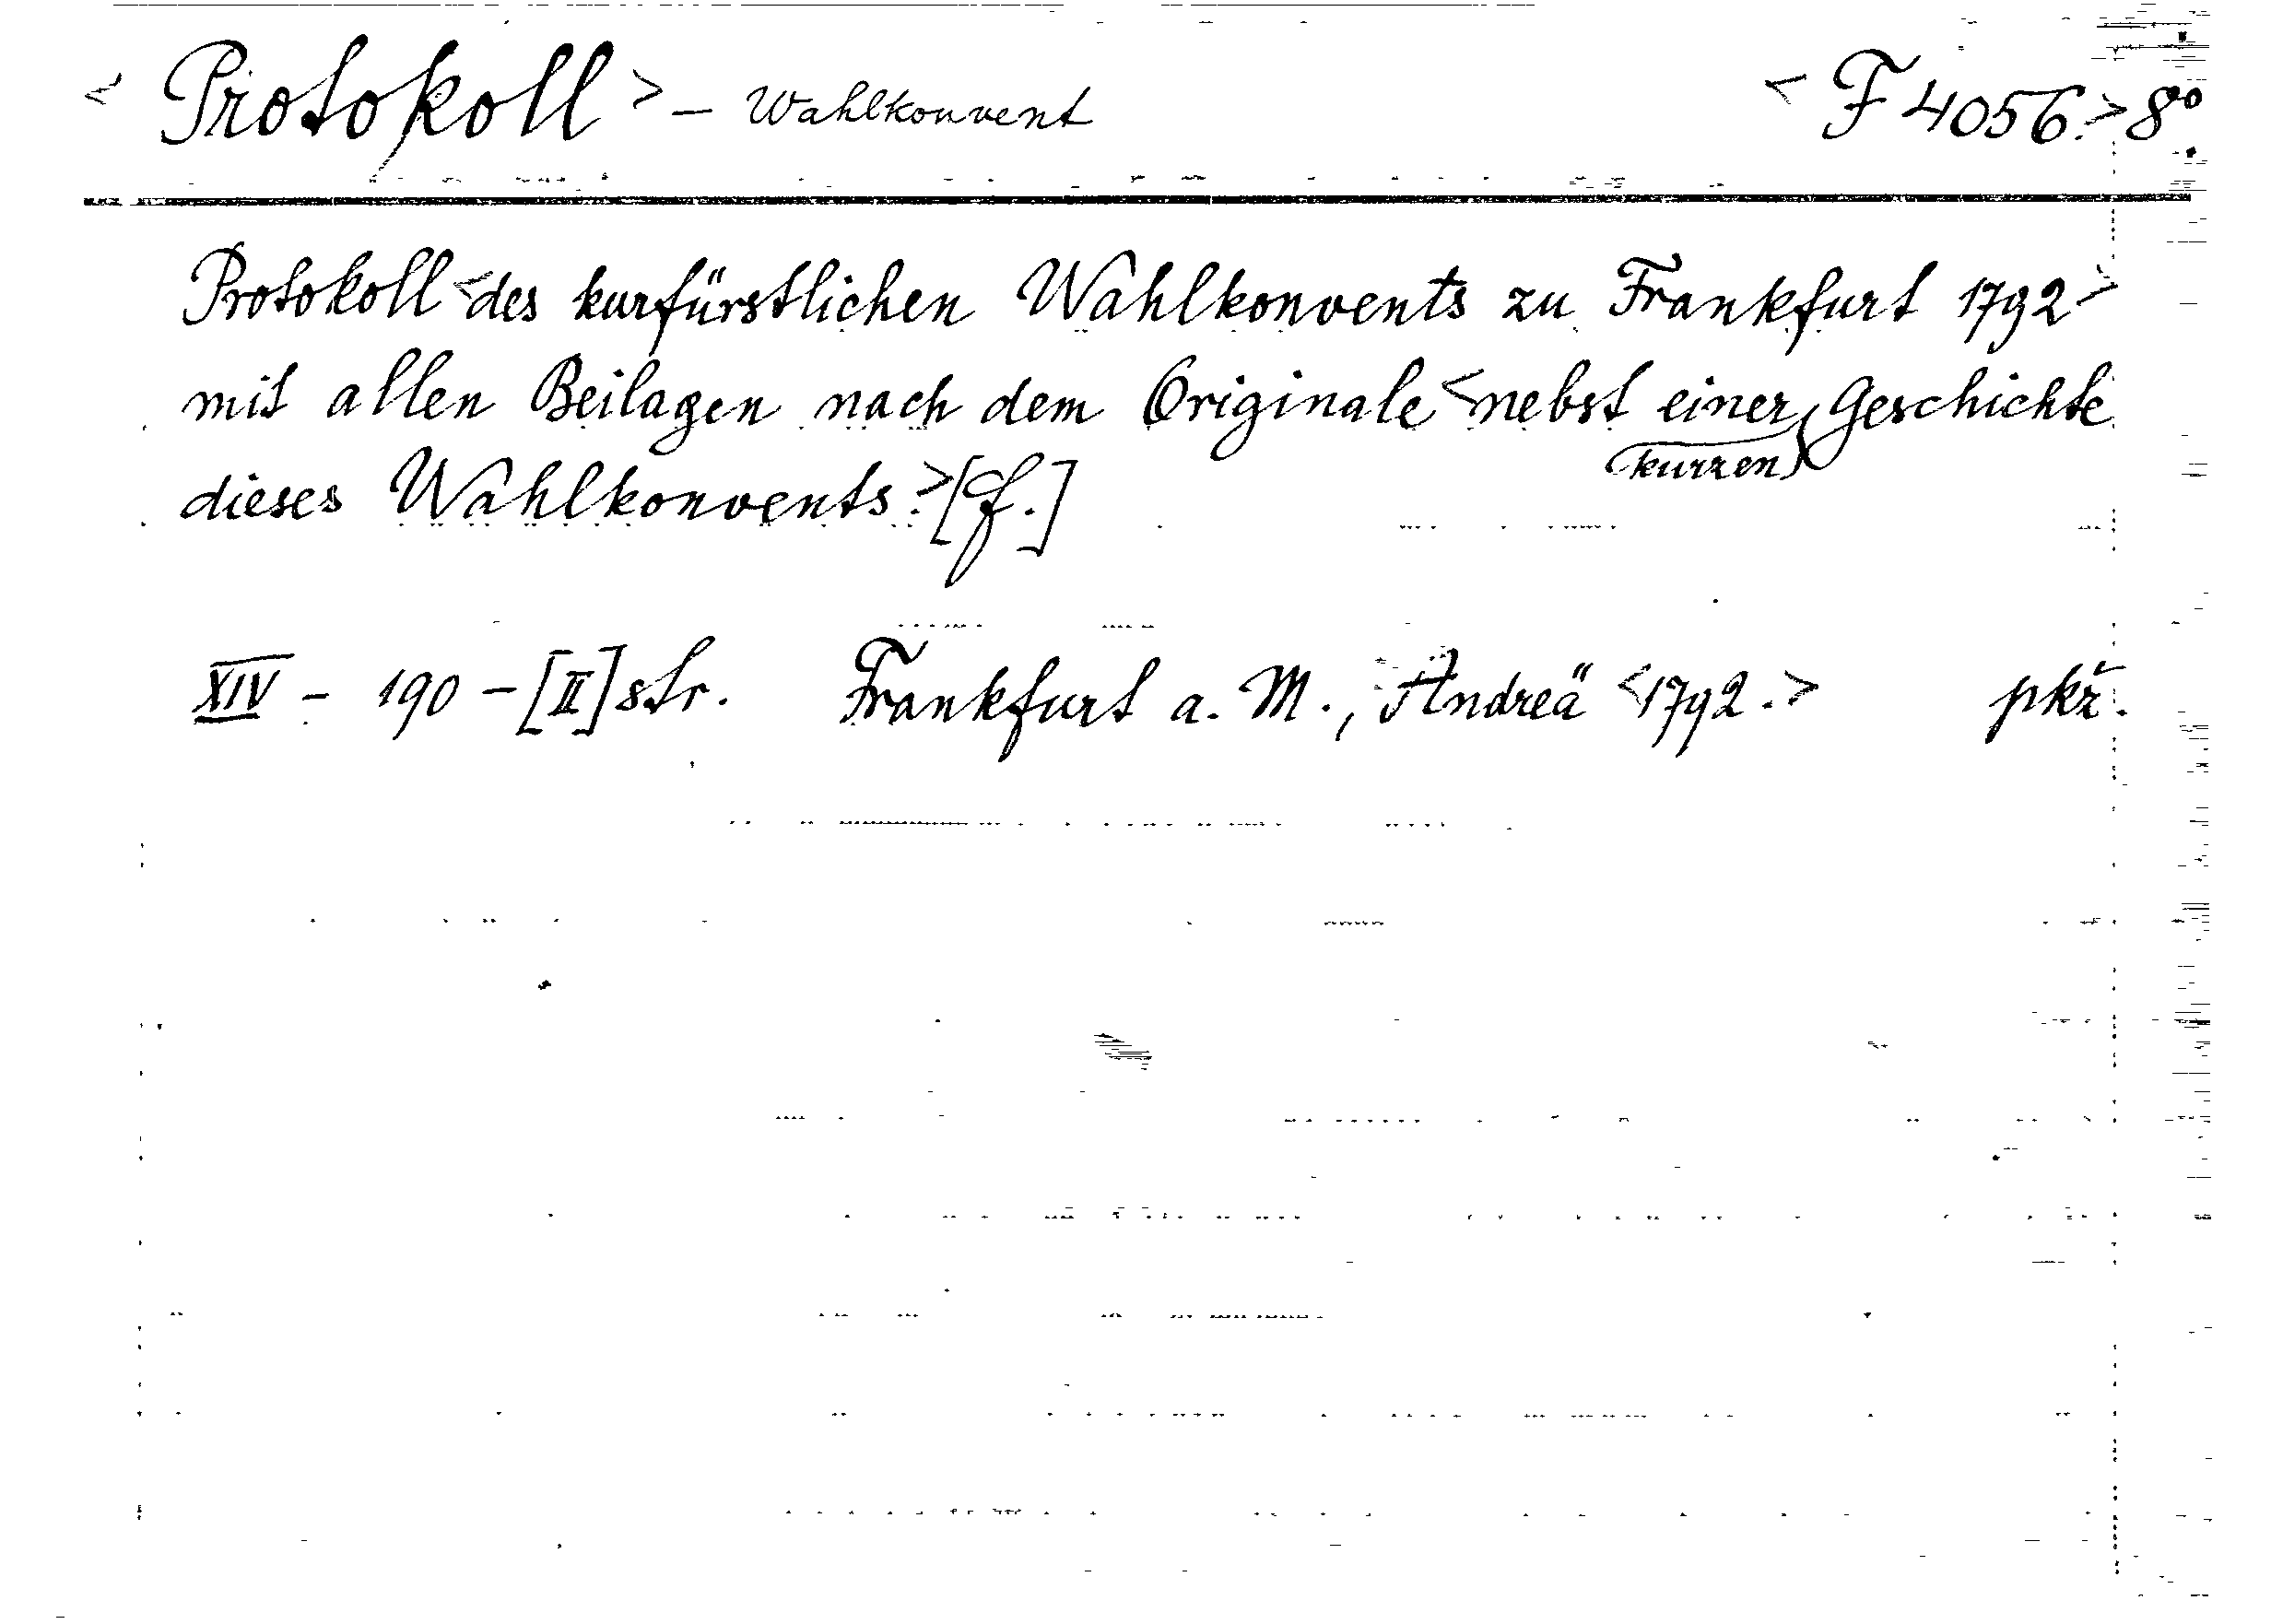 < Protokoll > – Wahlkonvent < F 4056.> 8°
Protokoll <des kurfürstlichen Wahlkonvents zu Frankfurt 1792>
mit allen Beilagen nach dem Originale <nebst einer kurzen Geschichte
dieses Wahlkonvents.> [f.]
XIV – 190 – [II] str. Frankfurt a. M., Andreä <1792.> pkř.